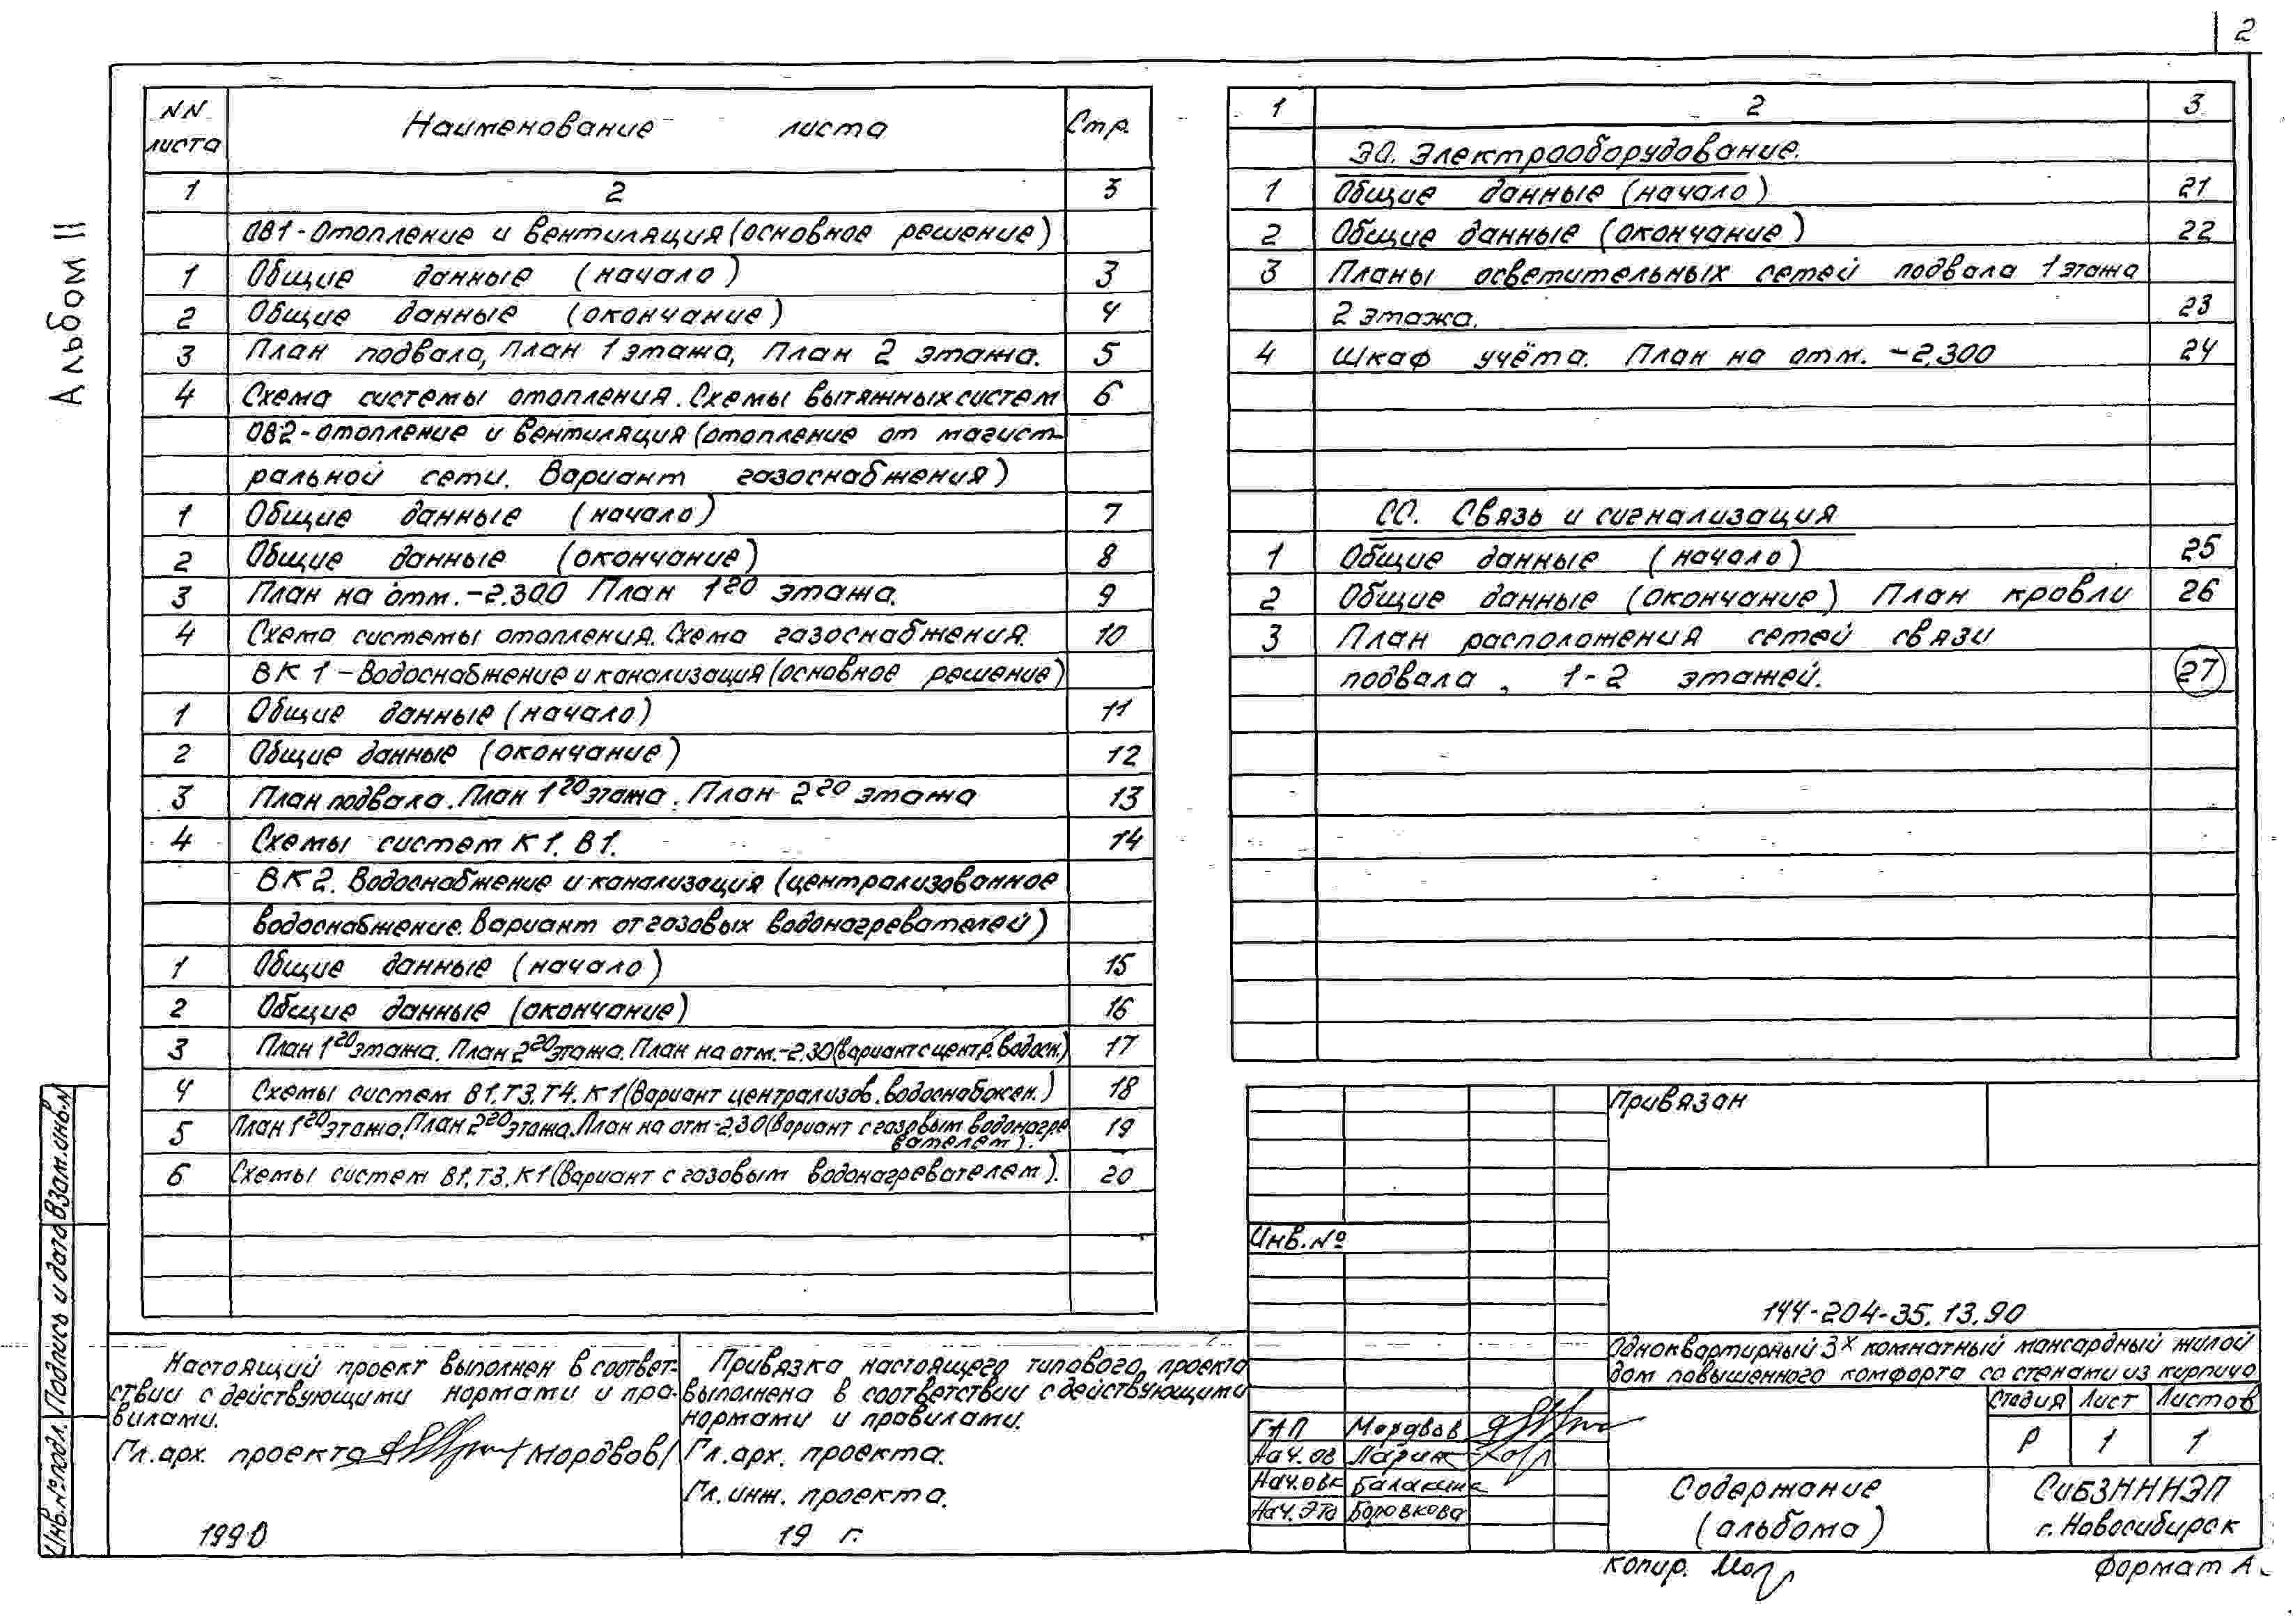 2
Альбом II
NN листа Наименование листа Стр.
1 2 3
ОВ1-Отопление и вентиляция (основное решение)
1 Общие данные (начало) 3
2 Общие данные (окончание) 4
3 План подвала, План 1 этажа, План 2 этажа. 5
4 Схема системы отопления. Схемы вытяжных систем 6
ОВ2-отопление и вентиляция (отопление от магист-
ральной сети. Вариант газоснабжения)
1 Общие данные (начало) 7
2 Общие данные (окончание) 8
3 План на отм. -2.300 План 1го этажа. 9
4 Схема системы отопления. Схема газоснабжения. 10
ВК 1 - Водоснабжение и канализация (основное решение)
1 Общие данные (начало) 11
2 Общие данные (окончание) 12
3 План подвала. План 1го этажа. План 2го этажа 13
4 Схемы систем К1. В1. 14
ВК2. Водоснабжение и канализация (централизованное
водоснабжение. Вариант от газовых водонагревателей)
1 Общие данные (начало) 15
2 Общие данные (окончание) 16
3 План 1го этажа. План 2го этажа. План на отм. -2.30 (вариант с центр. водосн.) 17
4 Схемы систем В1. Т3. Т4. К1 (Вариант централизов. водоснабжен.) 18
5 План 1го этажа. План 2го этажа. План на отм -2.30 (Вариант с газовым водонагре
вателем). 19
6 Схемы систем В1. Т3. К1 (Вариант с газовым водонагревателем). 20
1 2 3
ЭО. Электрооборудование.
1 Общие данные (начало) 21
2 Общие данные (окончание) 22
3 Планы осветительных сетей подвала 1 этажа
2 этажа. 23
4 Шкаф учёта. План на отм. -2.300 24
СС. Связь и сигнализация
1 Общие данные (начало) 25
2 Общие данные (окончание) План кровли 26
3 План расположения сетей связи
подвала, 1-2 этажей. 27
Привязан
Инв. №
144-204-35.13.90
Одноквартирный 3х комнатный мансардный жилой
дом повышенного комфорта со стенами из кирпича
Стадия Лист Листов
Р 1 1
ГАП Мордвов
Нач. ОВ Ларин
Нач. ОВК Балакина
Нач. ЭТО Боровкова
Содержание
(альбома)
СибЗНИИЭП
г. Новосибирск
Настоящий проект выполнен в соответ-
ствии с действующими нормами и пра-
вилами.
Гл. арх. проекта /Мордвов/
1990
Привязка настоящего типового проекта
выполнена в соответствии с действующими
нормами и правилами.
Гл. арх. проекта.
Гл. инж. проекта.
19 г.
Инв.№ подл. Подпись и дата Взам. инв. №
Копир.
Формат А